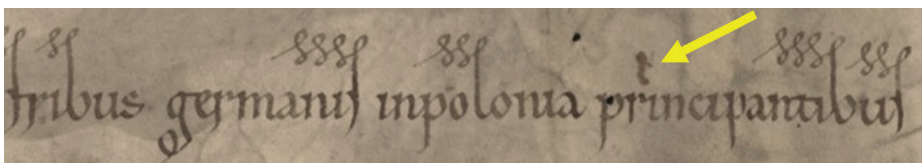 tribus germanis inpolonia principantibus